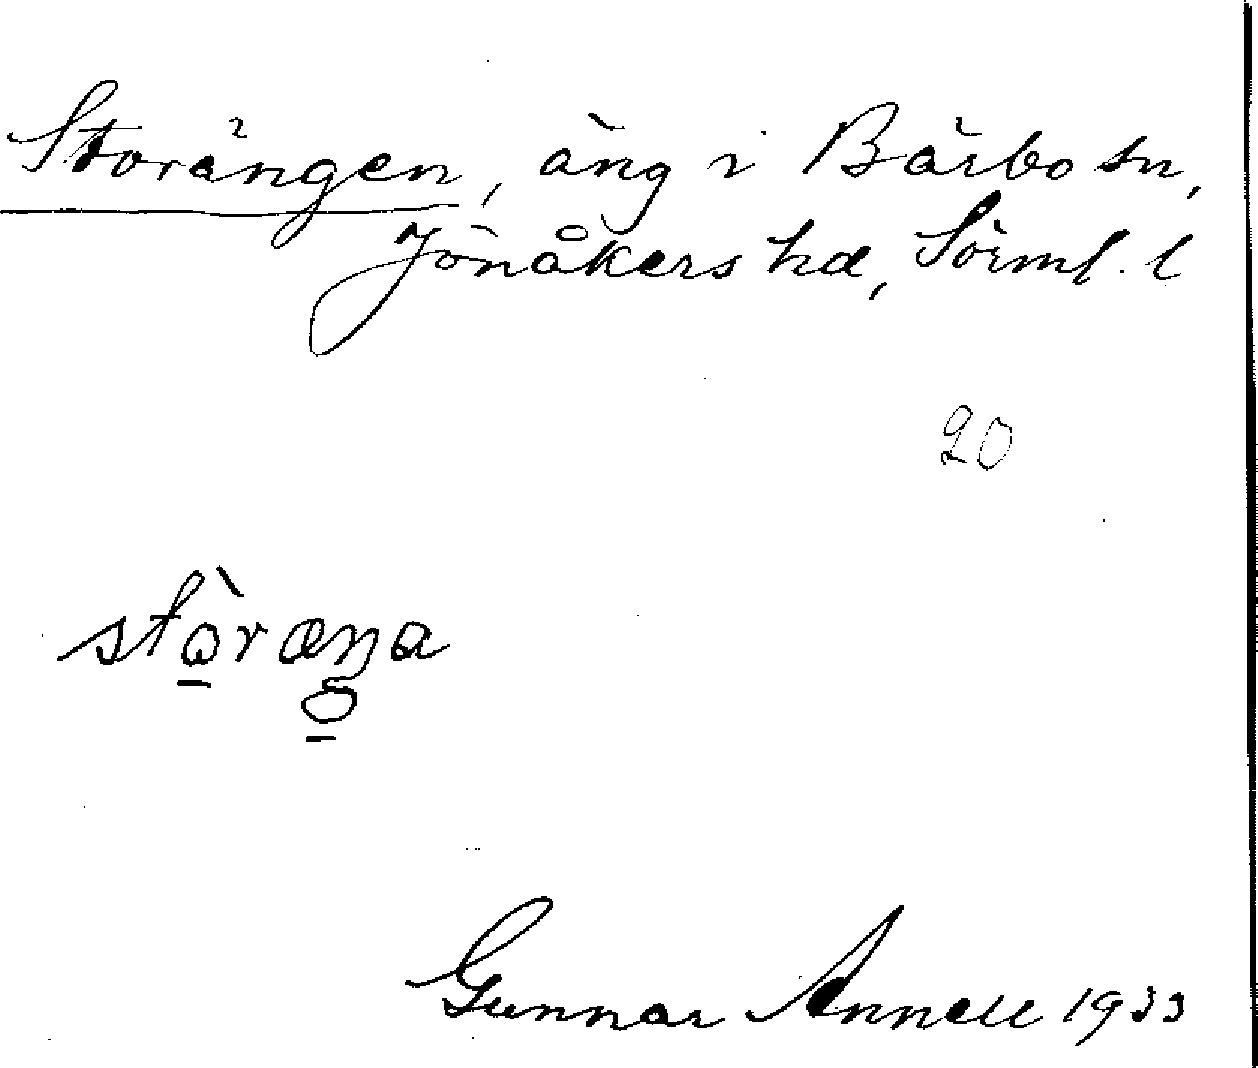 Storängen, äng i Bärbo sn,
Jönåkers hd, Sörml. l
20
stò̠ræŋa
Gunnar Annell 1933